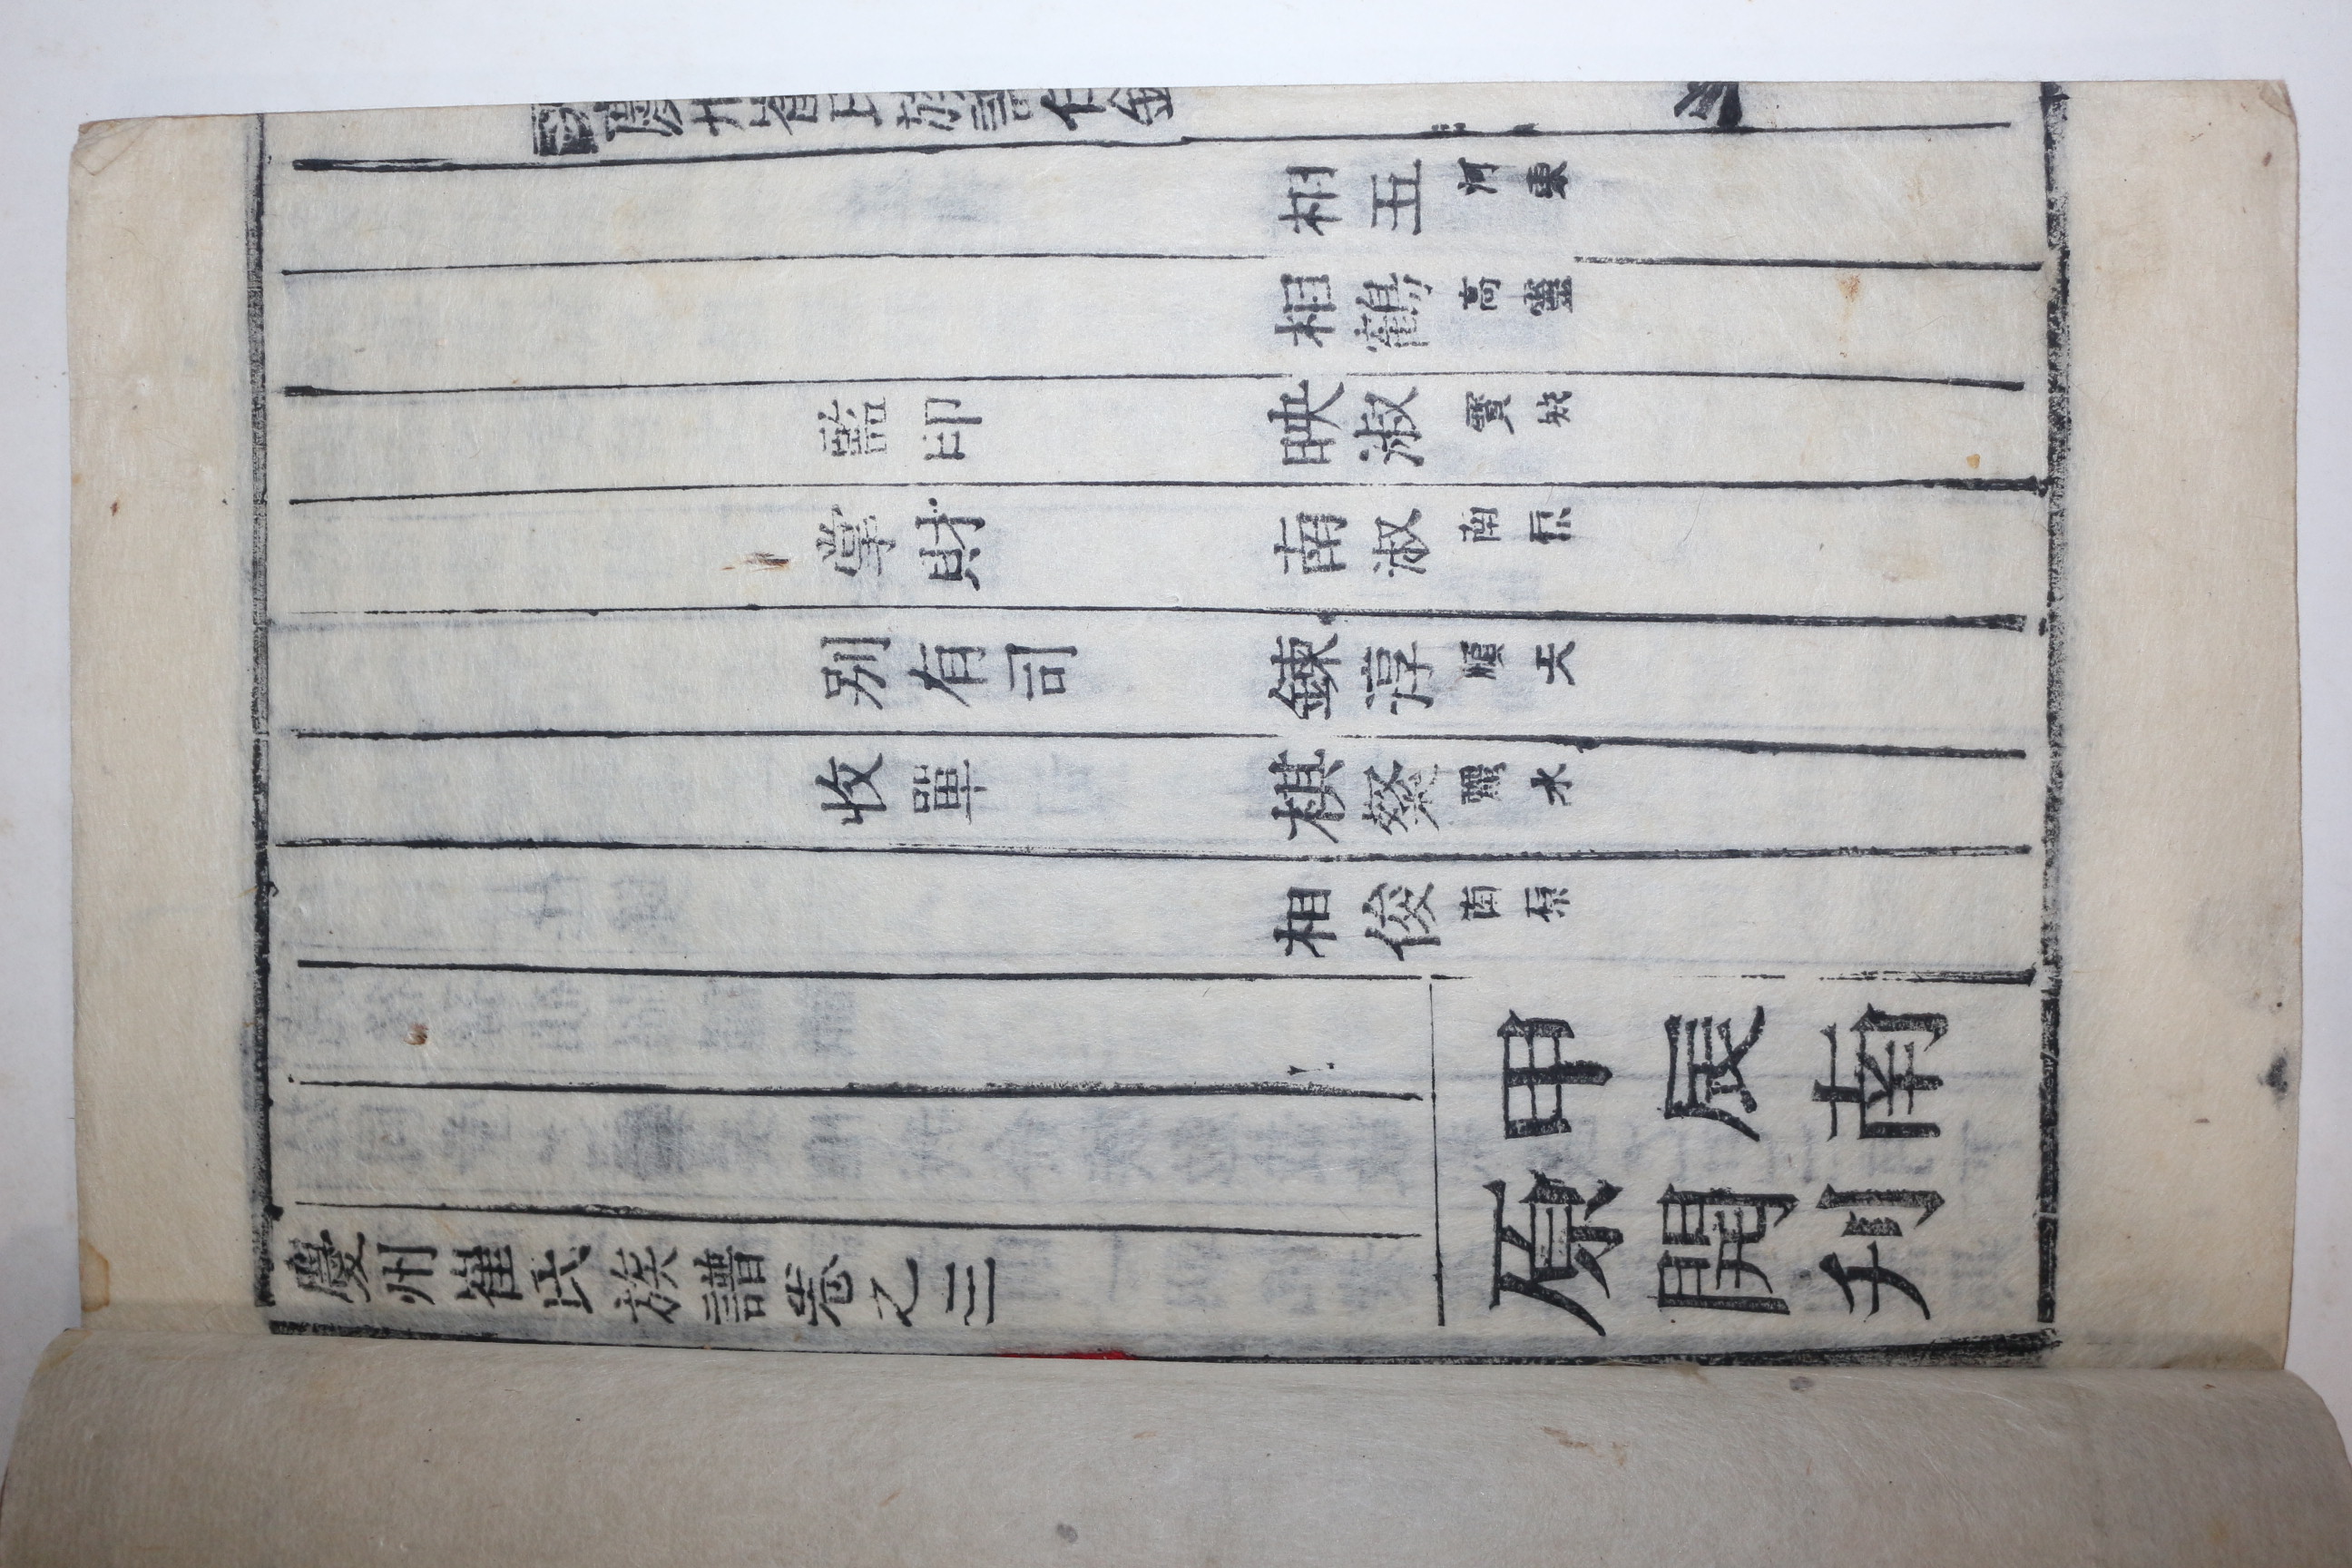 慶州崔氏族譜任
相五 河東
相鶴 高靈
監印 映淑 寶城
掌財 南淑 南原
别有司 鍊淳 順天
收單 棋燮 麗水
相俊 南原
甲辰南
原開刋
慶州崔氏族譜卷之三